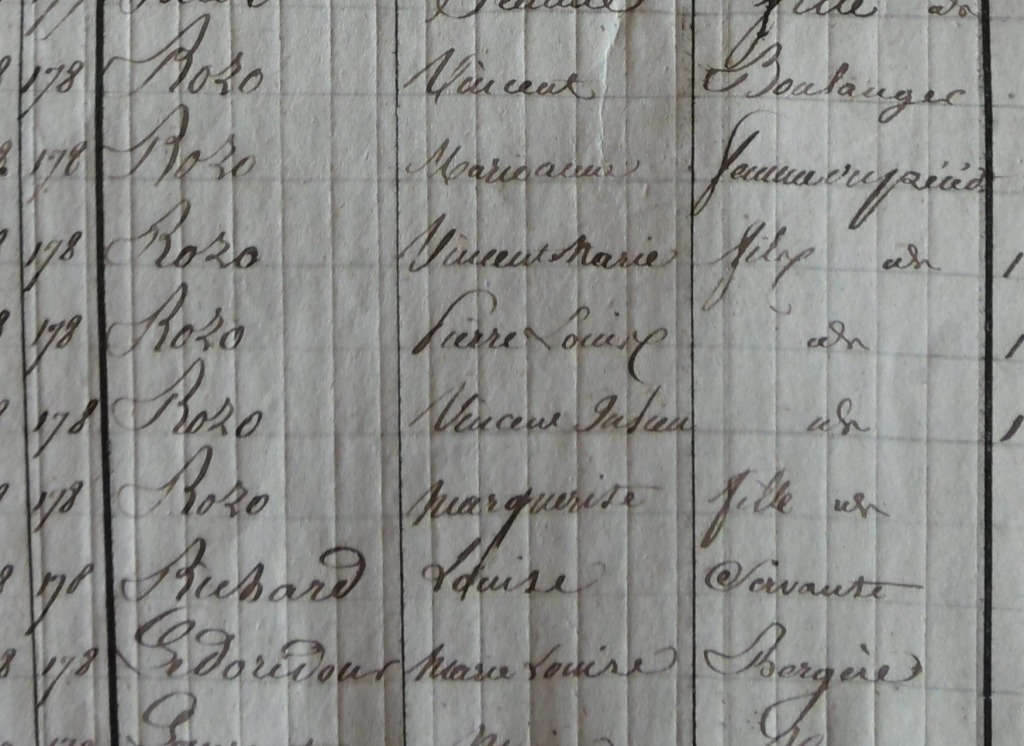 fille
178 Rozo Vincent Boulanger
178 Rozo Marieanne femme
178 Rozo Vincent Marie fils 1
178 Rozo Pierre Louis 1
178 Rozo Vincent Julien 1
178 Rozo Marguerite fille
178 Richard Louise Servante
178 Marie Louise Bergère